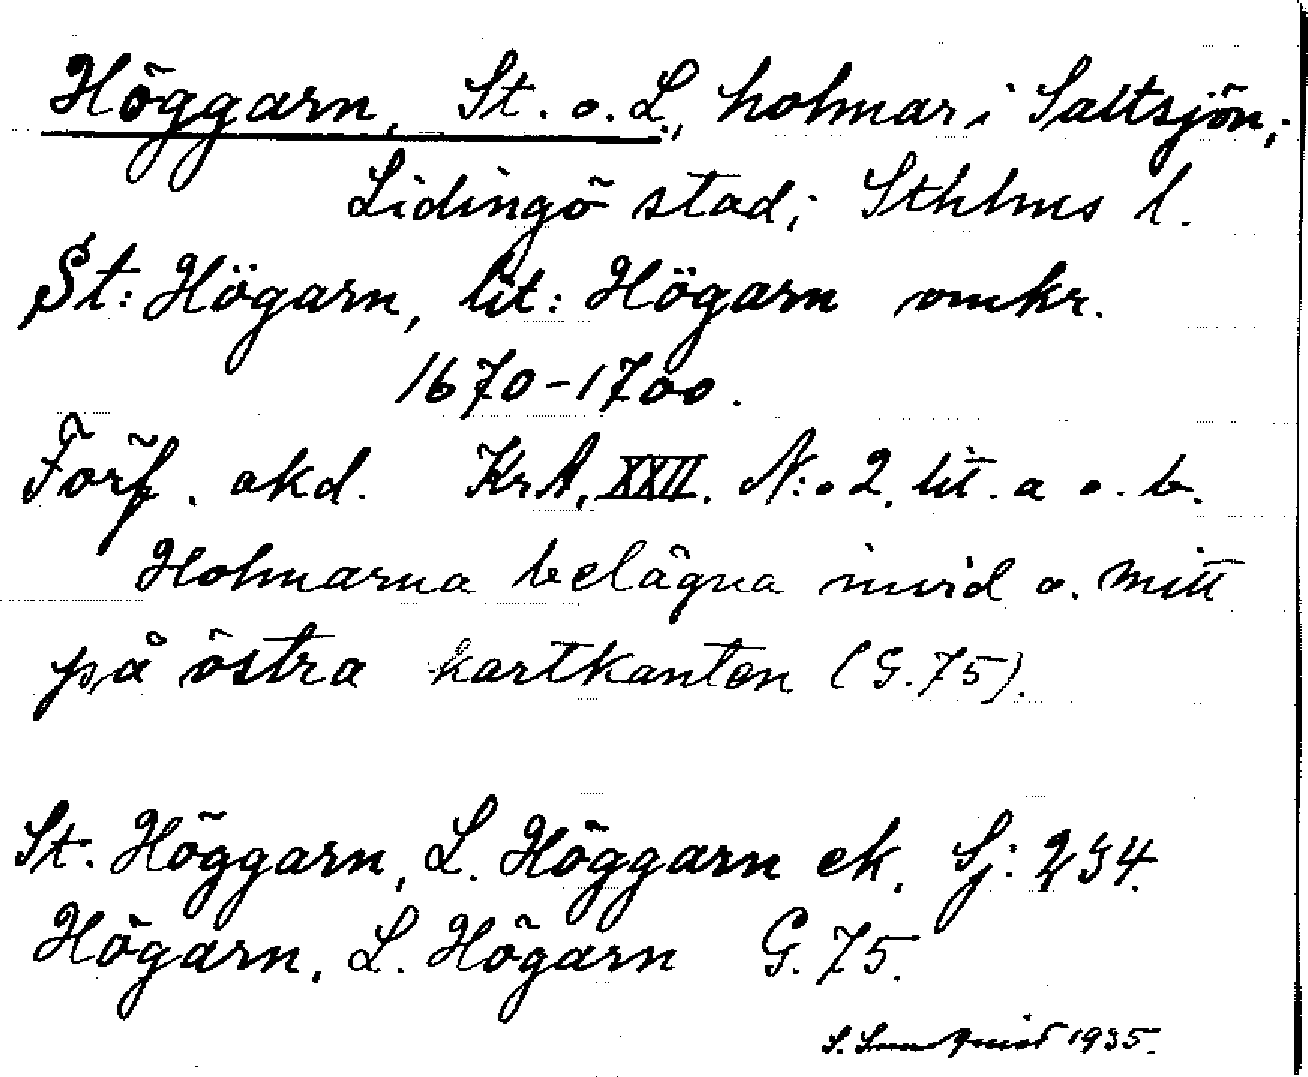 Höggarn, St. o. L., holmar i Saltsjön,
Lidingö stad; Sthlms l.
St: Högarn, lit: Högarn omkr.
1670-1700.
Förf. okd. KrA, XXII. N:o 2. lit. a o. b.
Holmarna belägna invid o. mitt
på östra kartkanten (G.75).
St. Höggarn, L. Höggarn ek. Sj: 234.
Högarn, L. Högarn G. 75.
S. 1935.